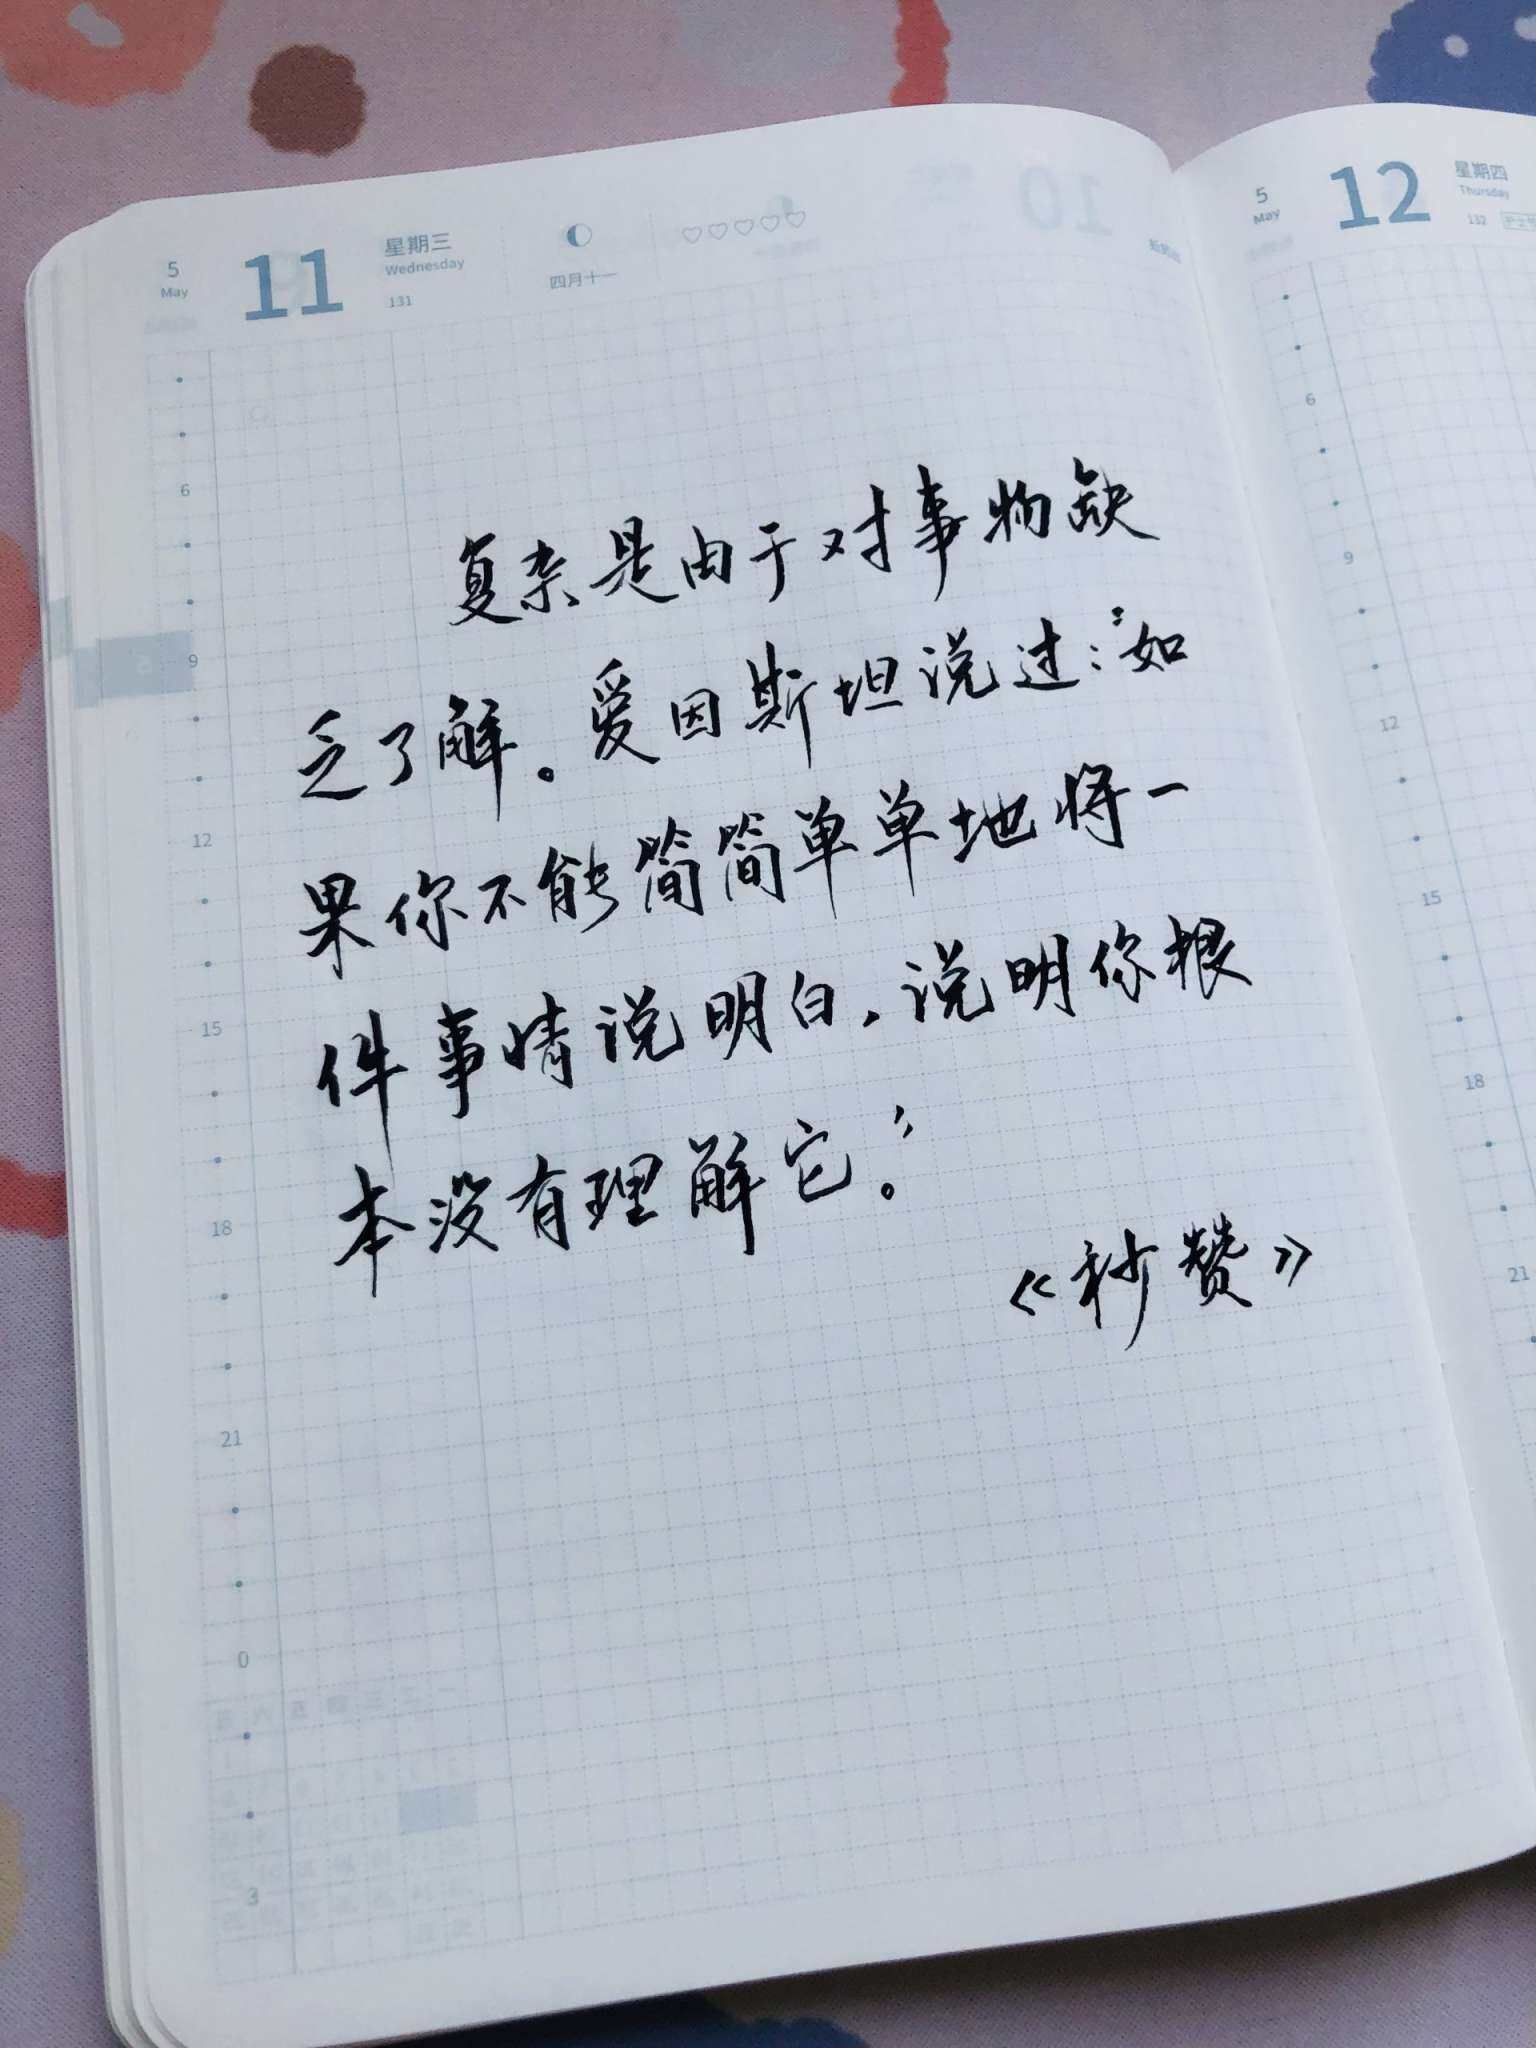 5
May
11
星期三
Wednesday
131
四月十一
复杂是由于对事物缺
乏了解。爱因斯坦说过:"如
果你不能简简单单地将一
件事情说明白,说明你根
本没有理解它。"
《秒赞》
6
9
12
15
18
21
0
3
5
May
12
星期四
Thursday
132
6
9
12
15
18
21